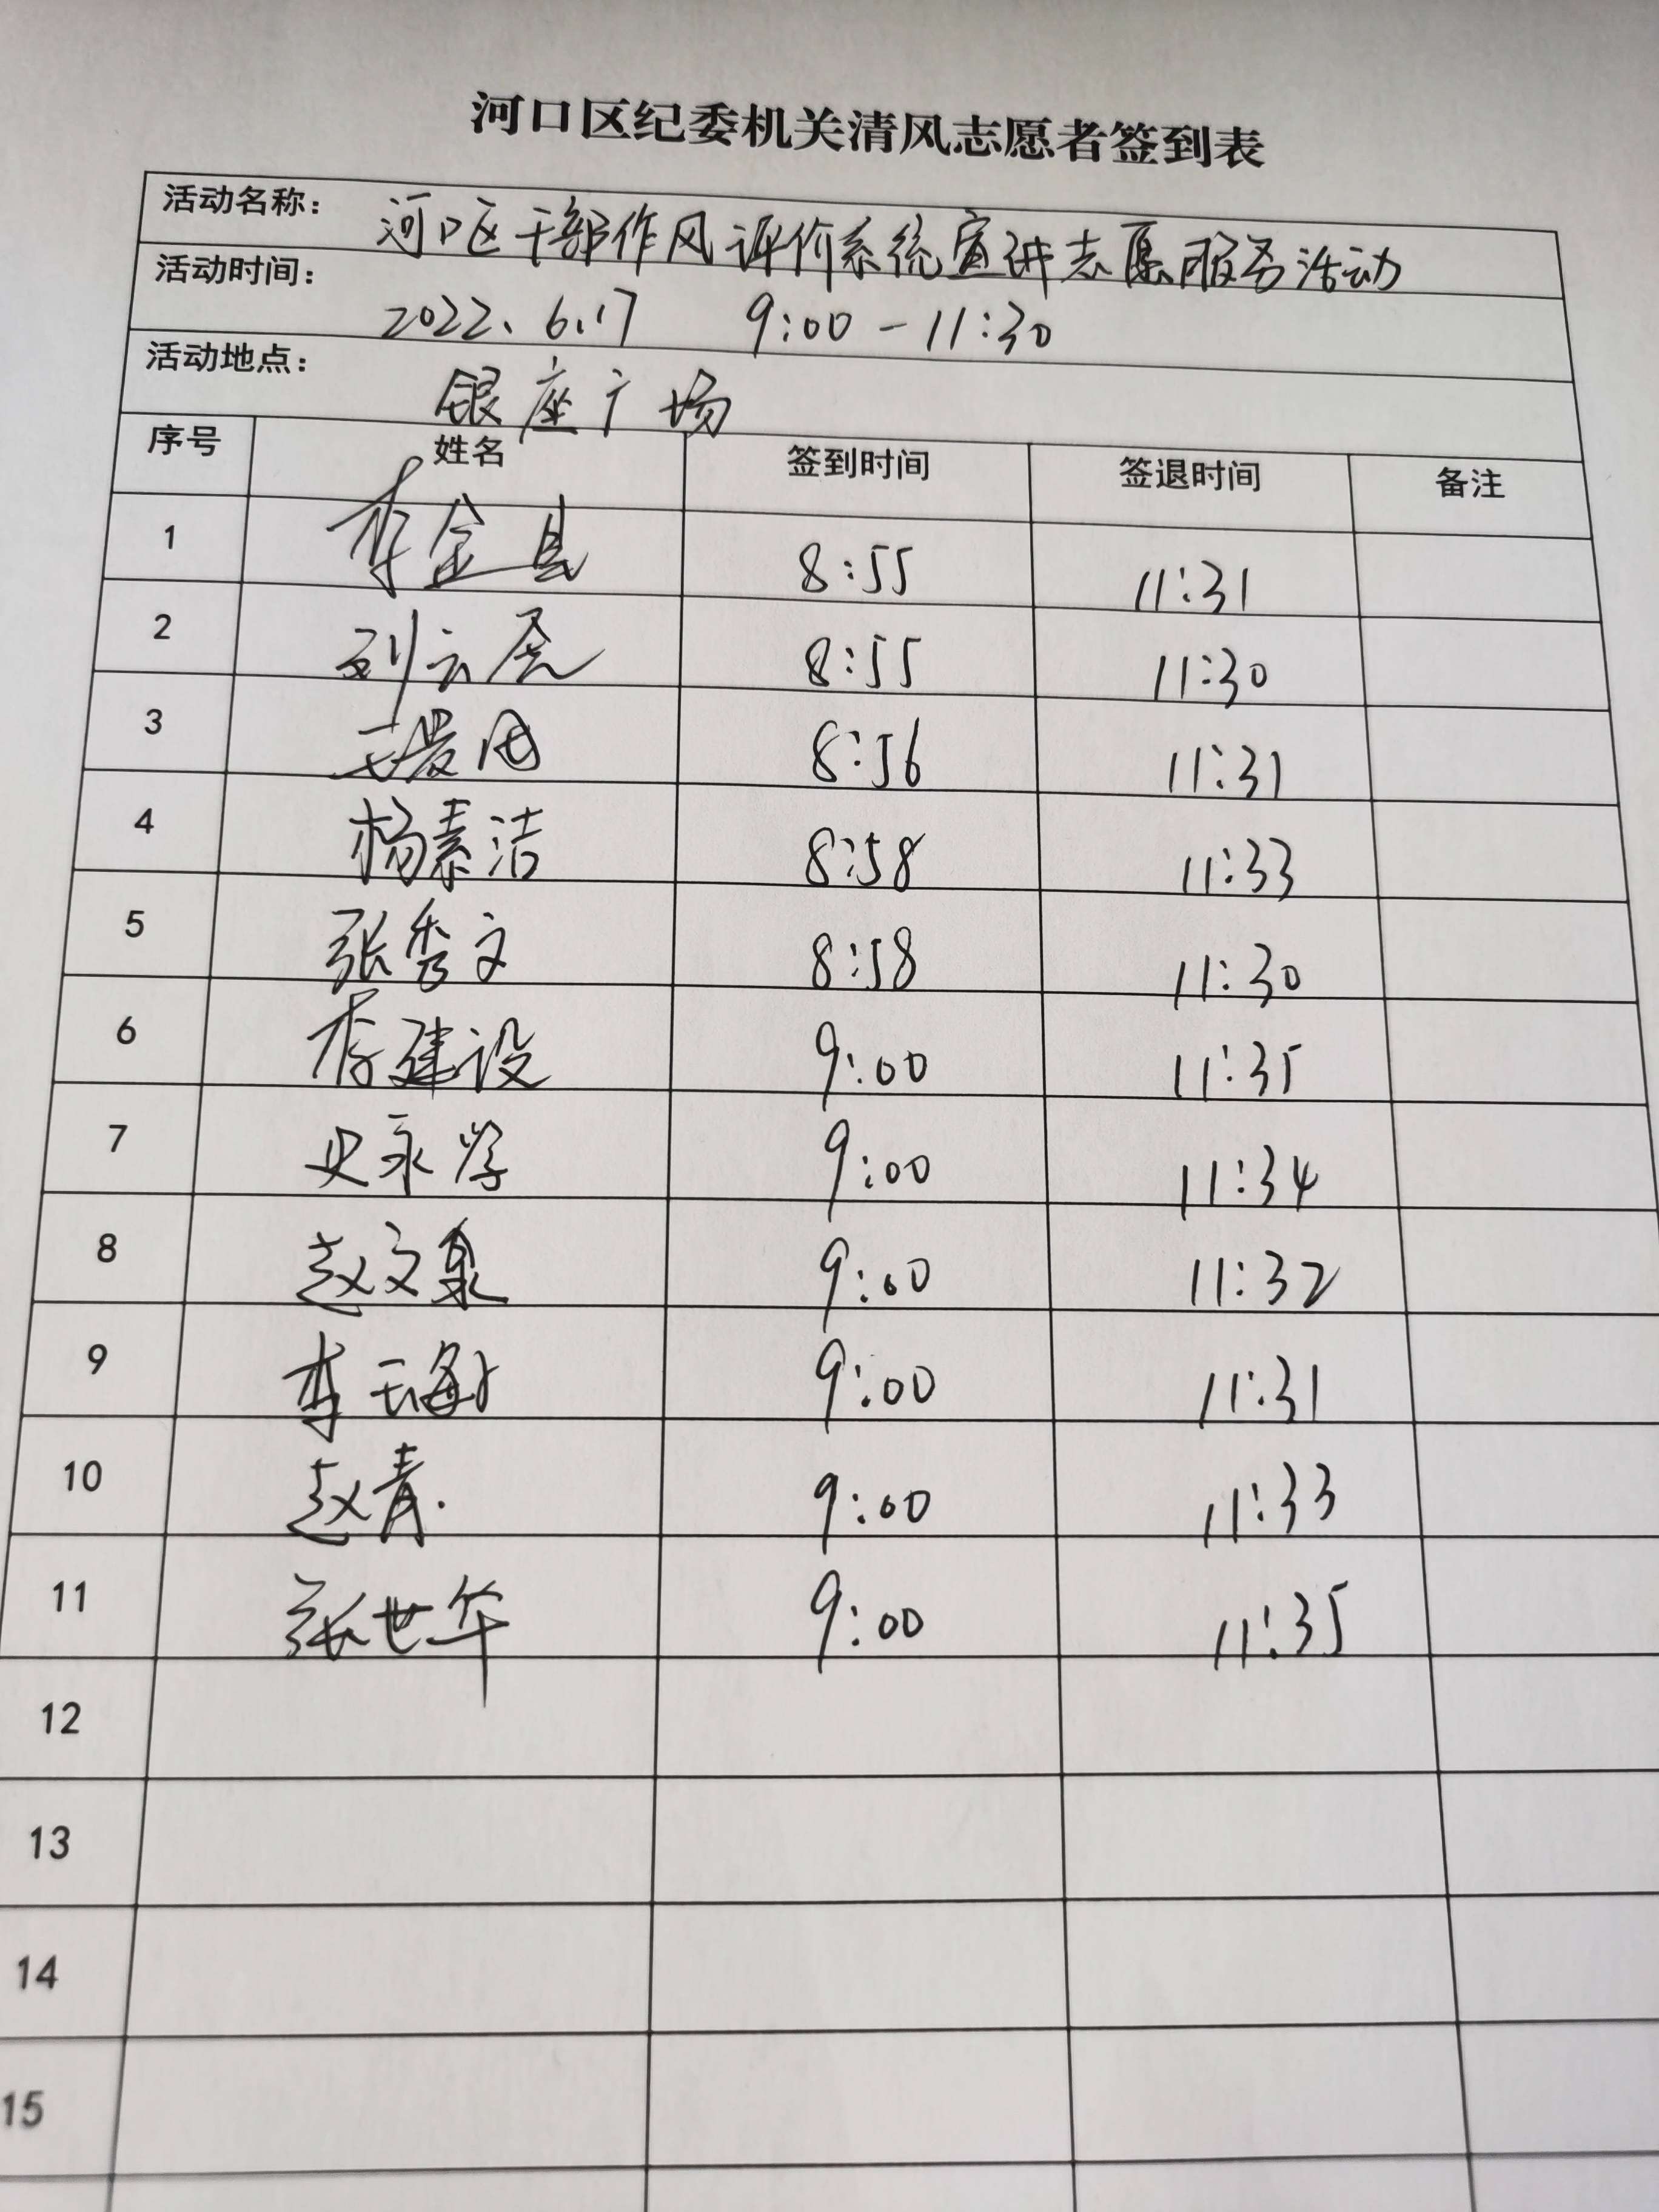 河口区纪委机关清风志愿者签到表
活动名称： 河口区干部作风评价系统宣讲志愿服务活动
活动时间： 2022、6.17 9:00-11:30
活动地点： 银座广场
序号 姓名 签到时间 签退时间 备注
1 李金 8:55 11:31
2 刘云 8:55 11:30
3 8:56 11:31
4 杨素洁 8:58 11:33
5 张秀文 8:58 11:30
6 李建设 9:00 11:35
7 史永学 9:00 11:34
8 赵文泉 9:00 11:32
9 李云海 9:00 11:31
10 赵青. 9:00 11:33
11 张世华 9:00 11:35
12
13
14
15